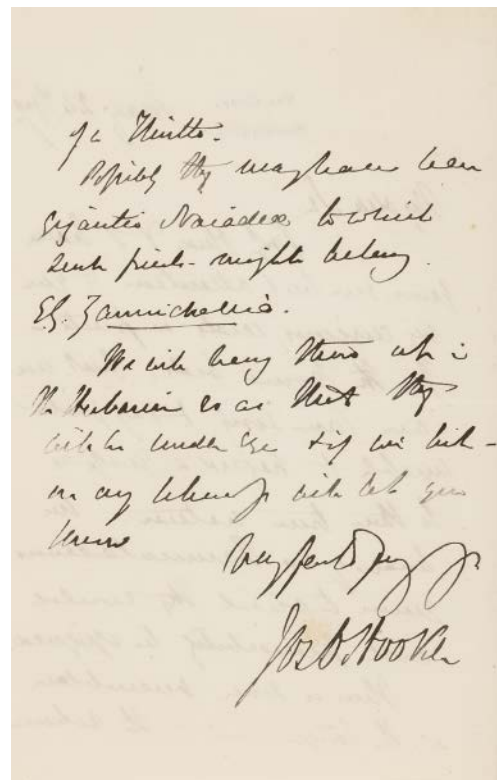 Possibly they may have been
gigantic Naiadeae to which
such fruits might belong.
Eg. Zannichellia.
We will hang them up in
the Herbarium so as that they
will be under eye & if we hit
on any will let you
know
Very
Jos D Hooker